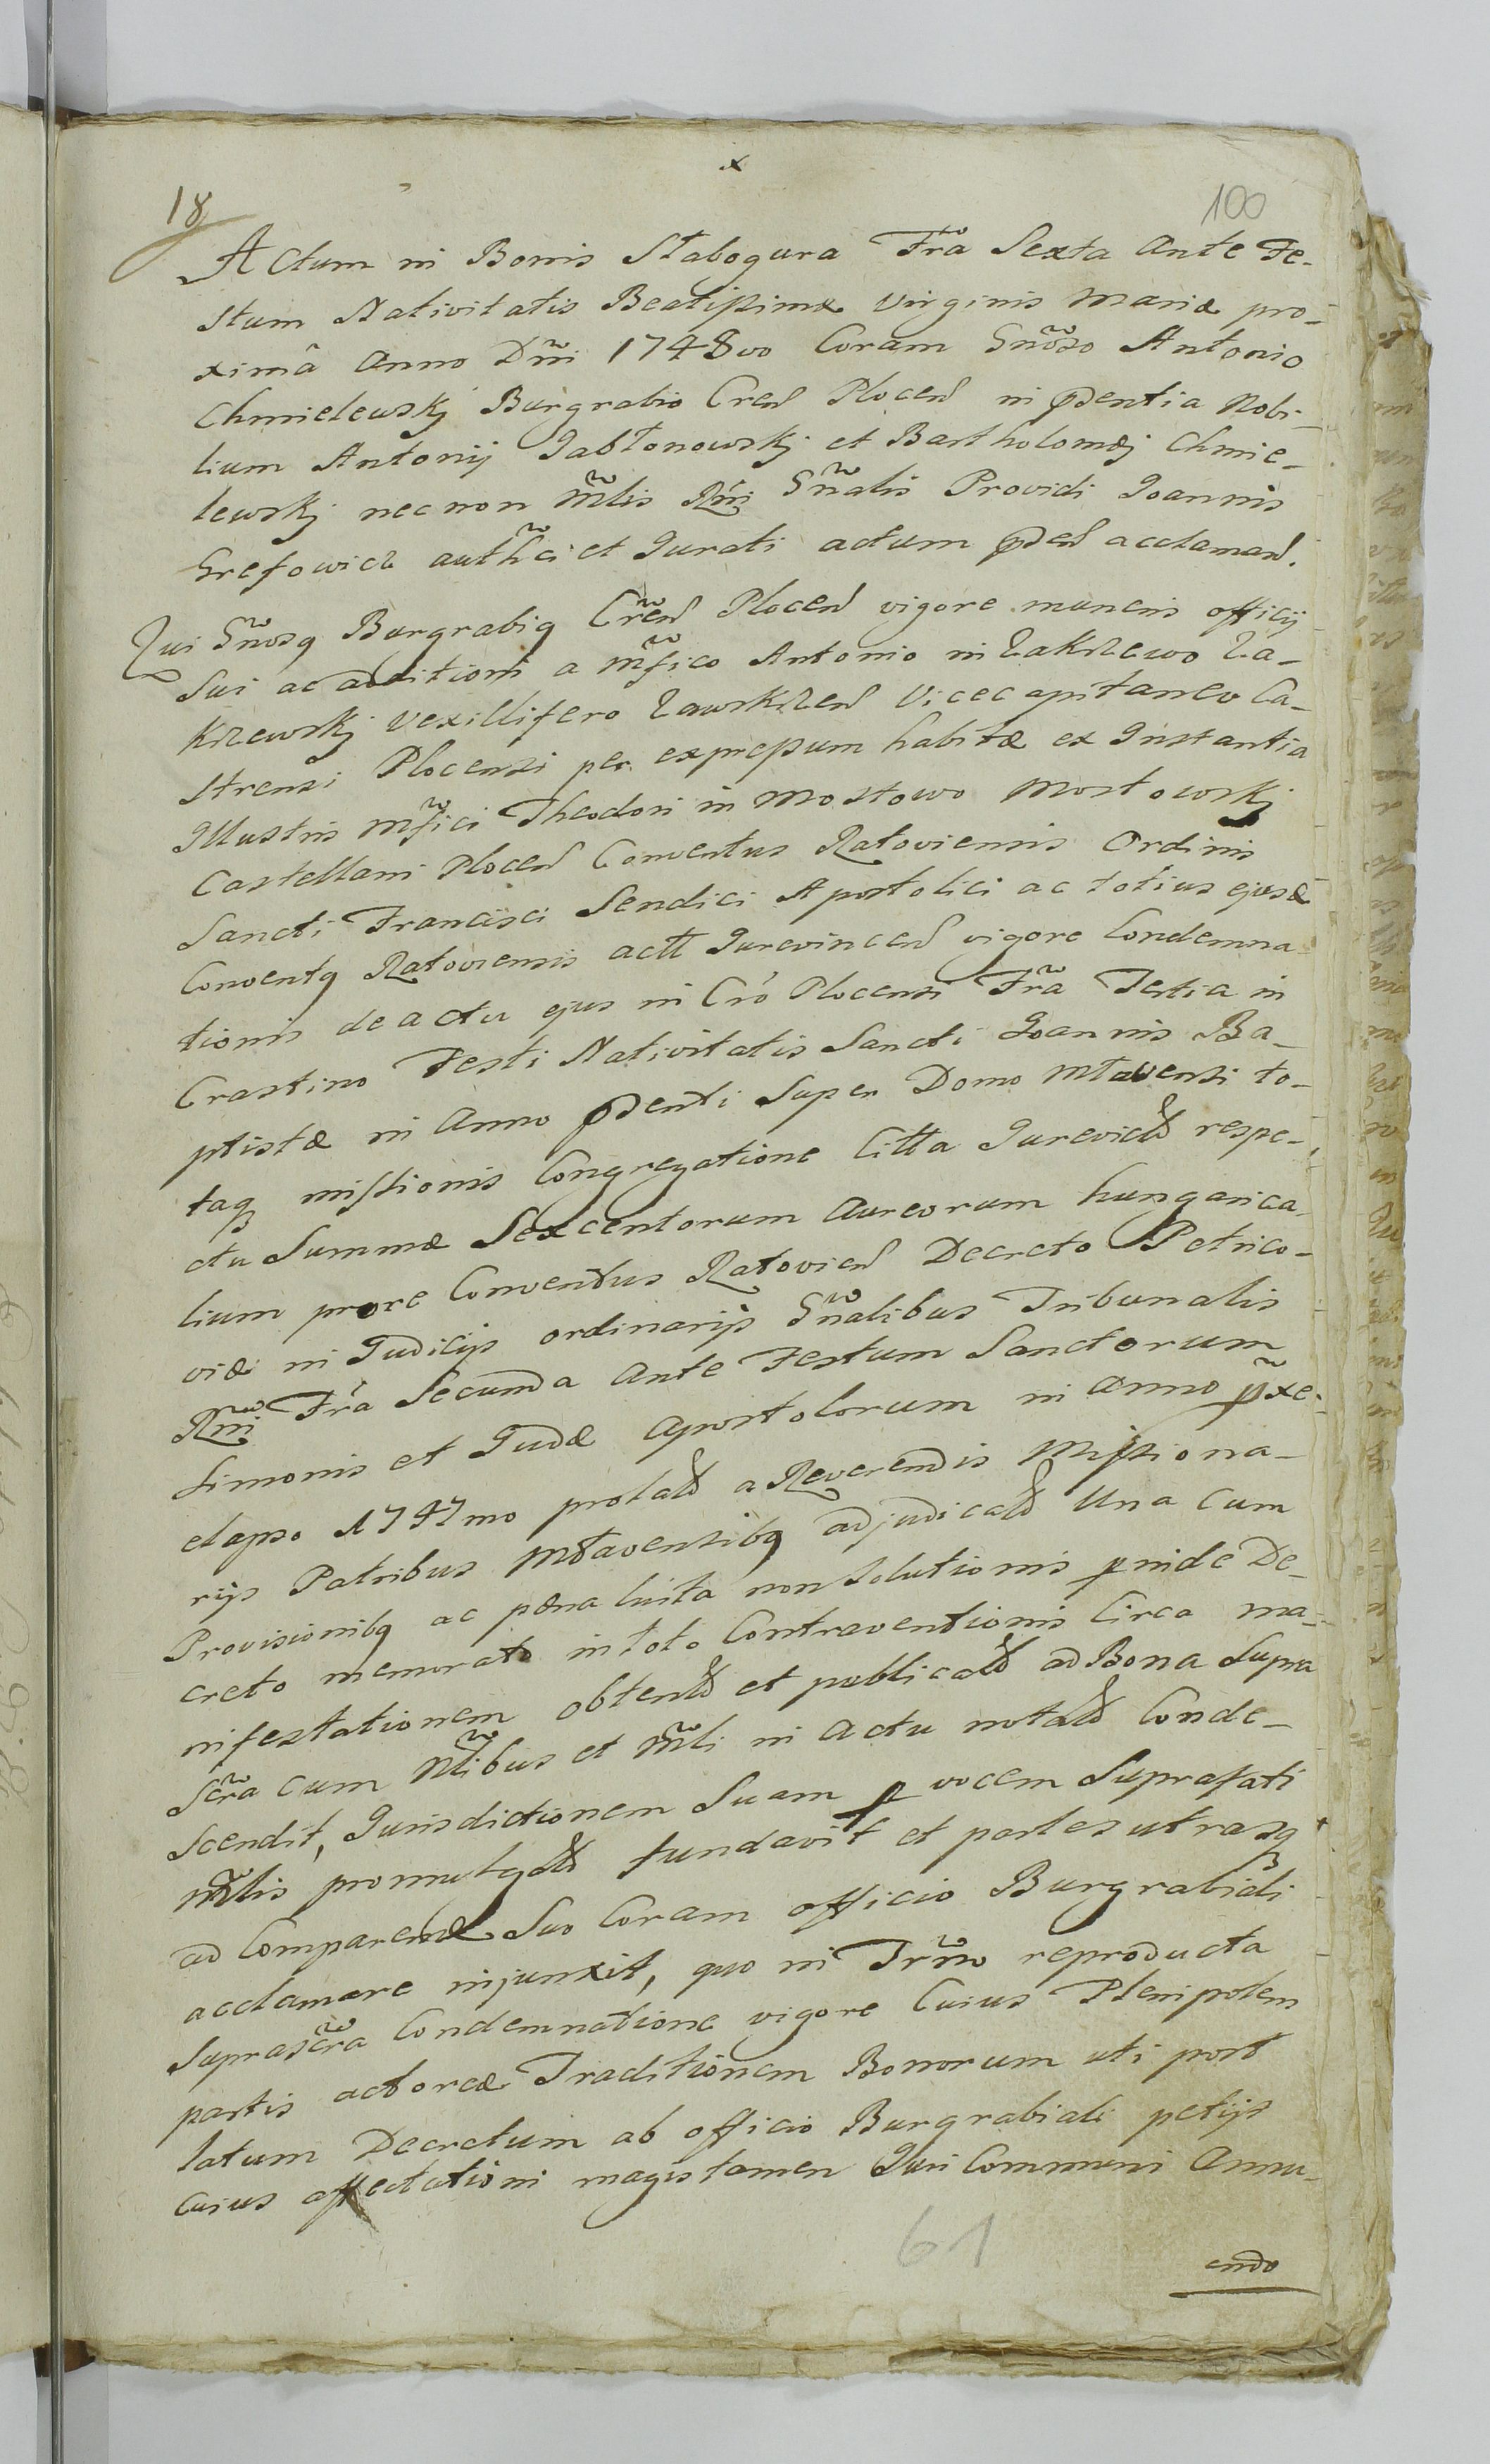 x
18
100
Actum in Bonis Słabogura Fr̃a Sexta Ante Fe-
stum Nativitatis Beatissimæ Virginis Mariæ pro-
ximâ Anno Dñi 1748vo Coram Gñoso Antonio
Chmielewskj Burgrabio Cren̄ Plocen̄ in p̄dentia Nobi-
lium Antonij Jabłonowskj et Bartholomæj Chmie-
lewskj nec non Mñlis Rñi Gñalis Providi Joannis
Grefowicz auth̃ci et Jurati actum p̄den̄ acclaman̄.
Qui Gñosq Burgrabiq Cr̃en̄ Plocen̄ vigore muneris officij
Sui ac additioni a Mf̃ico Antonio in Zakrzewo Za-
krzewskj Vexillifero Zawskrzen̄ Vicecapitaneo Ca-
strensi Plocensi per expressum habitæ ex Instantia
Illustris Mf̃ici Theodori in Mostowo Mostowskj
Castellani Plocen̄ Conventus Ratoviensis Ordinis
Sancti Francisci Sendici Apostolici ac totius ejusd
Conventq Ratoviensis actt Jurevincen̄ vigore Condemna-
tionis de actu ejus in Cr̃o Plocensi Fr̃a Tertia in
Crastino Festi Nativitatis Sancti Joannis Ba-
ptistæ in Anno p̄denti Super Domo Mławensi to-
taq missionis Congregatione Litta Jurevict̄ respe-
ctu Summæ Sexcentorum Aureorum hungarica-
lium prore Conventus Ratovien̄ Decreto Petrico-
viæ in Judicijs ordinarijs Gñalibus Tribunalis
Rñi Fr̃a Secunda Ante Festum Sanctorum
Simonis et Judæ Apostolorum in Anno p̃xe-
elapso 1747mo prolat̄ a Reverendis Missiona-
rijs Patribus Mławensibq adjudicat̄ Una cum
Provisionibq ac pæna luita non Solutionis p̄inde De-
creto memorato in toto Contraventionis Circa ma-
nifestationem obtent̄ et publicat̄ ad Bona Supra
Scr̃a cum Nl̃ibus et Mñli in Actu notat̄ Conde-
scendit, Jurisdictionem Suam p̄ vocem Suprafati
Mñlis promulgat̄ fundavit et partes utrasq
ad Comparend Suo Coram officio Burgrabiali
acclamare injunxit, quo in Tr̃no reproducta
Suprascr̃a Condemnatione vigore Cuius Plenipoten
partis actoreæ Traditionem Bonorum uti post
latum Decretum ab officio Burgrabiali petijt
Cuius affectationi magis tamen Juri Communi Annu-
endo
61